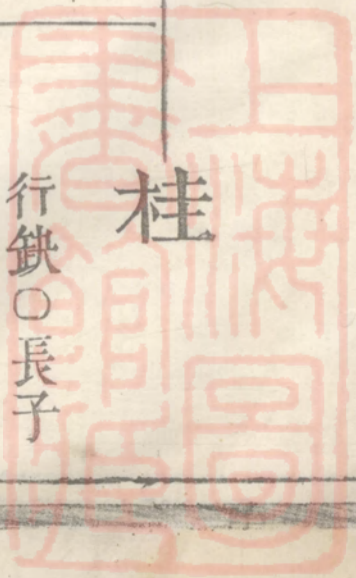 桂
行缺○長子
上海圖
書館藏